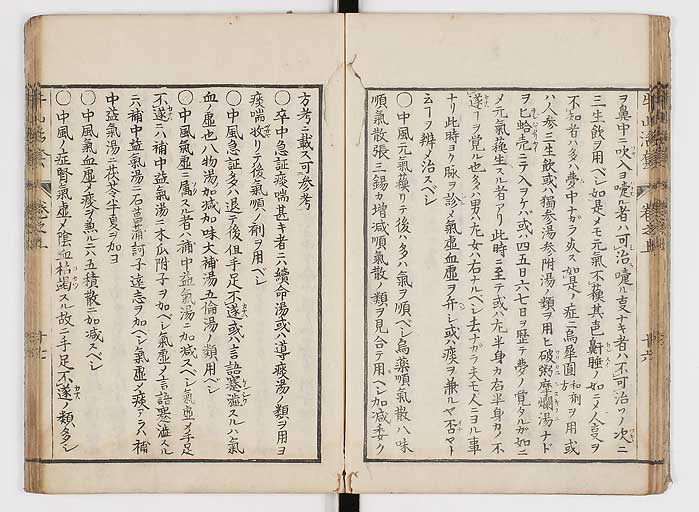 ヲ鼻中ニ吹入ヨ嚏ル者ハ可治嚏ル叓ナキ者ハ不可治ツノ次ニ
三生飲ヲ用ベシ如是メモ元氣不蘓其色鼾睡ノ如ニメ人叓ヲ
不知者ハ多ハ夢中ナガラ炎ス如是ノ症ニ烏犀圓和剤方ヲ用或
ハ人参三生飲或ハ獨参湯参附湯ノ類ヲ用ヒ破粥摩爛湯ナド
ヲヒ蛤壳ニテ入ヲケバ或ハ四五日六七日ヲ歴テ夢ノ覚タルガ如ニ
メ元氣蘓生スル者アリ此時ニ至テ或ハ左半身カ右半身カノ不
遂ヲ覚ル也多ハ男ハ左女ハ右ナルベシ去ナガラ夫モ人ニヨル事
ナリ此時ヨク脉ヲ診メ氣虚血虚ヲ弁シ或ハ痰ヲ兼ルヤ否ヤト
云一ヲ辨メ治スベシ
〇中風元氣蘓リテ後ハ多ハ氣ヲ順ベシ烏藥順氣散八味
順氣散張三錫カ増減順氣散ノ類ヲ見合テ用ベシ加減委ク
方考ニ載ス可参考
〇卒中急証痰喘甚キ者ニハ續命湯或ハ導痰湯ノ類ヲ用ヨ
痰喘收リテ後氣順ノ剤ヲ用ベシ
〇中風急証多ハ退テ後但手足不遂或ハ言語蹇澁スルハ氣
血ノ虚也八物湯ノ加減加味大補湯五倫湯ノ類用ベシ
〇中風氣虚ニ属スル者ハ補中益氣湯ニ加減スベシ氣虚メ手足
不遂ニハ補中益氣湯ニ木瓜附子ヲ加ベシ氣虚メ言語蹇澁スル
ニハ補中益氣湯ニ石菖蒲訶子遠志ヲ加ベシ氣虚メ痰アラハ補
中益氣湯ニ茯苓半夏ヲ加ヨ
〇中風氣血虚メ痰ヲ兼ルニハ五積散ニ加減スベシ
〇中風ノ症腎氣虚メ陰血枯竭スル故ニ手足不遂ノ類多シ